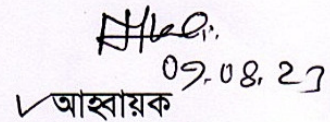 09.08.23
আহবায়ক